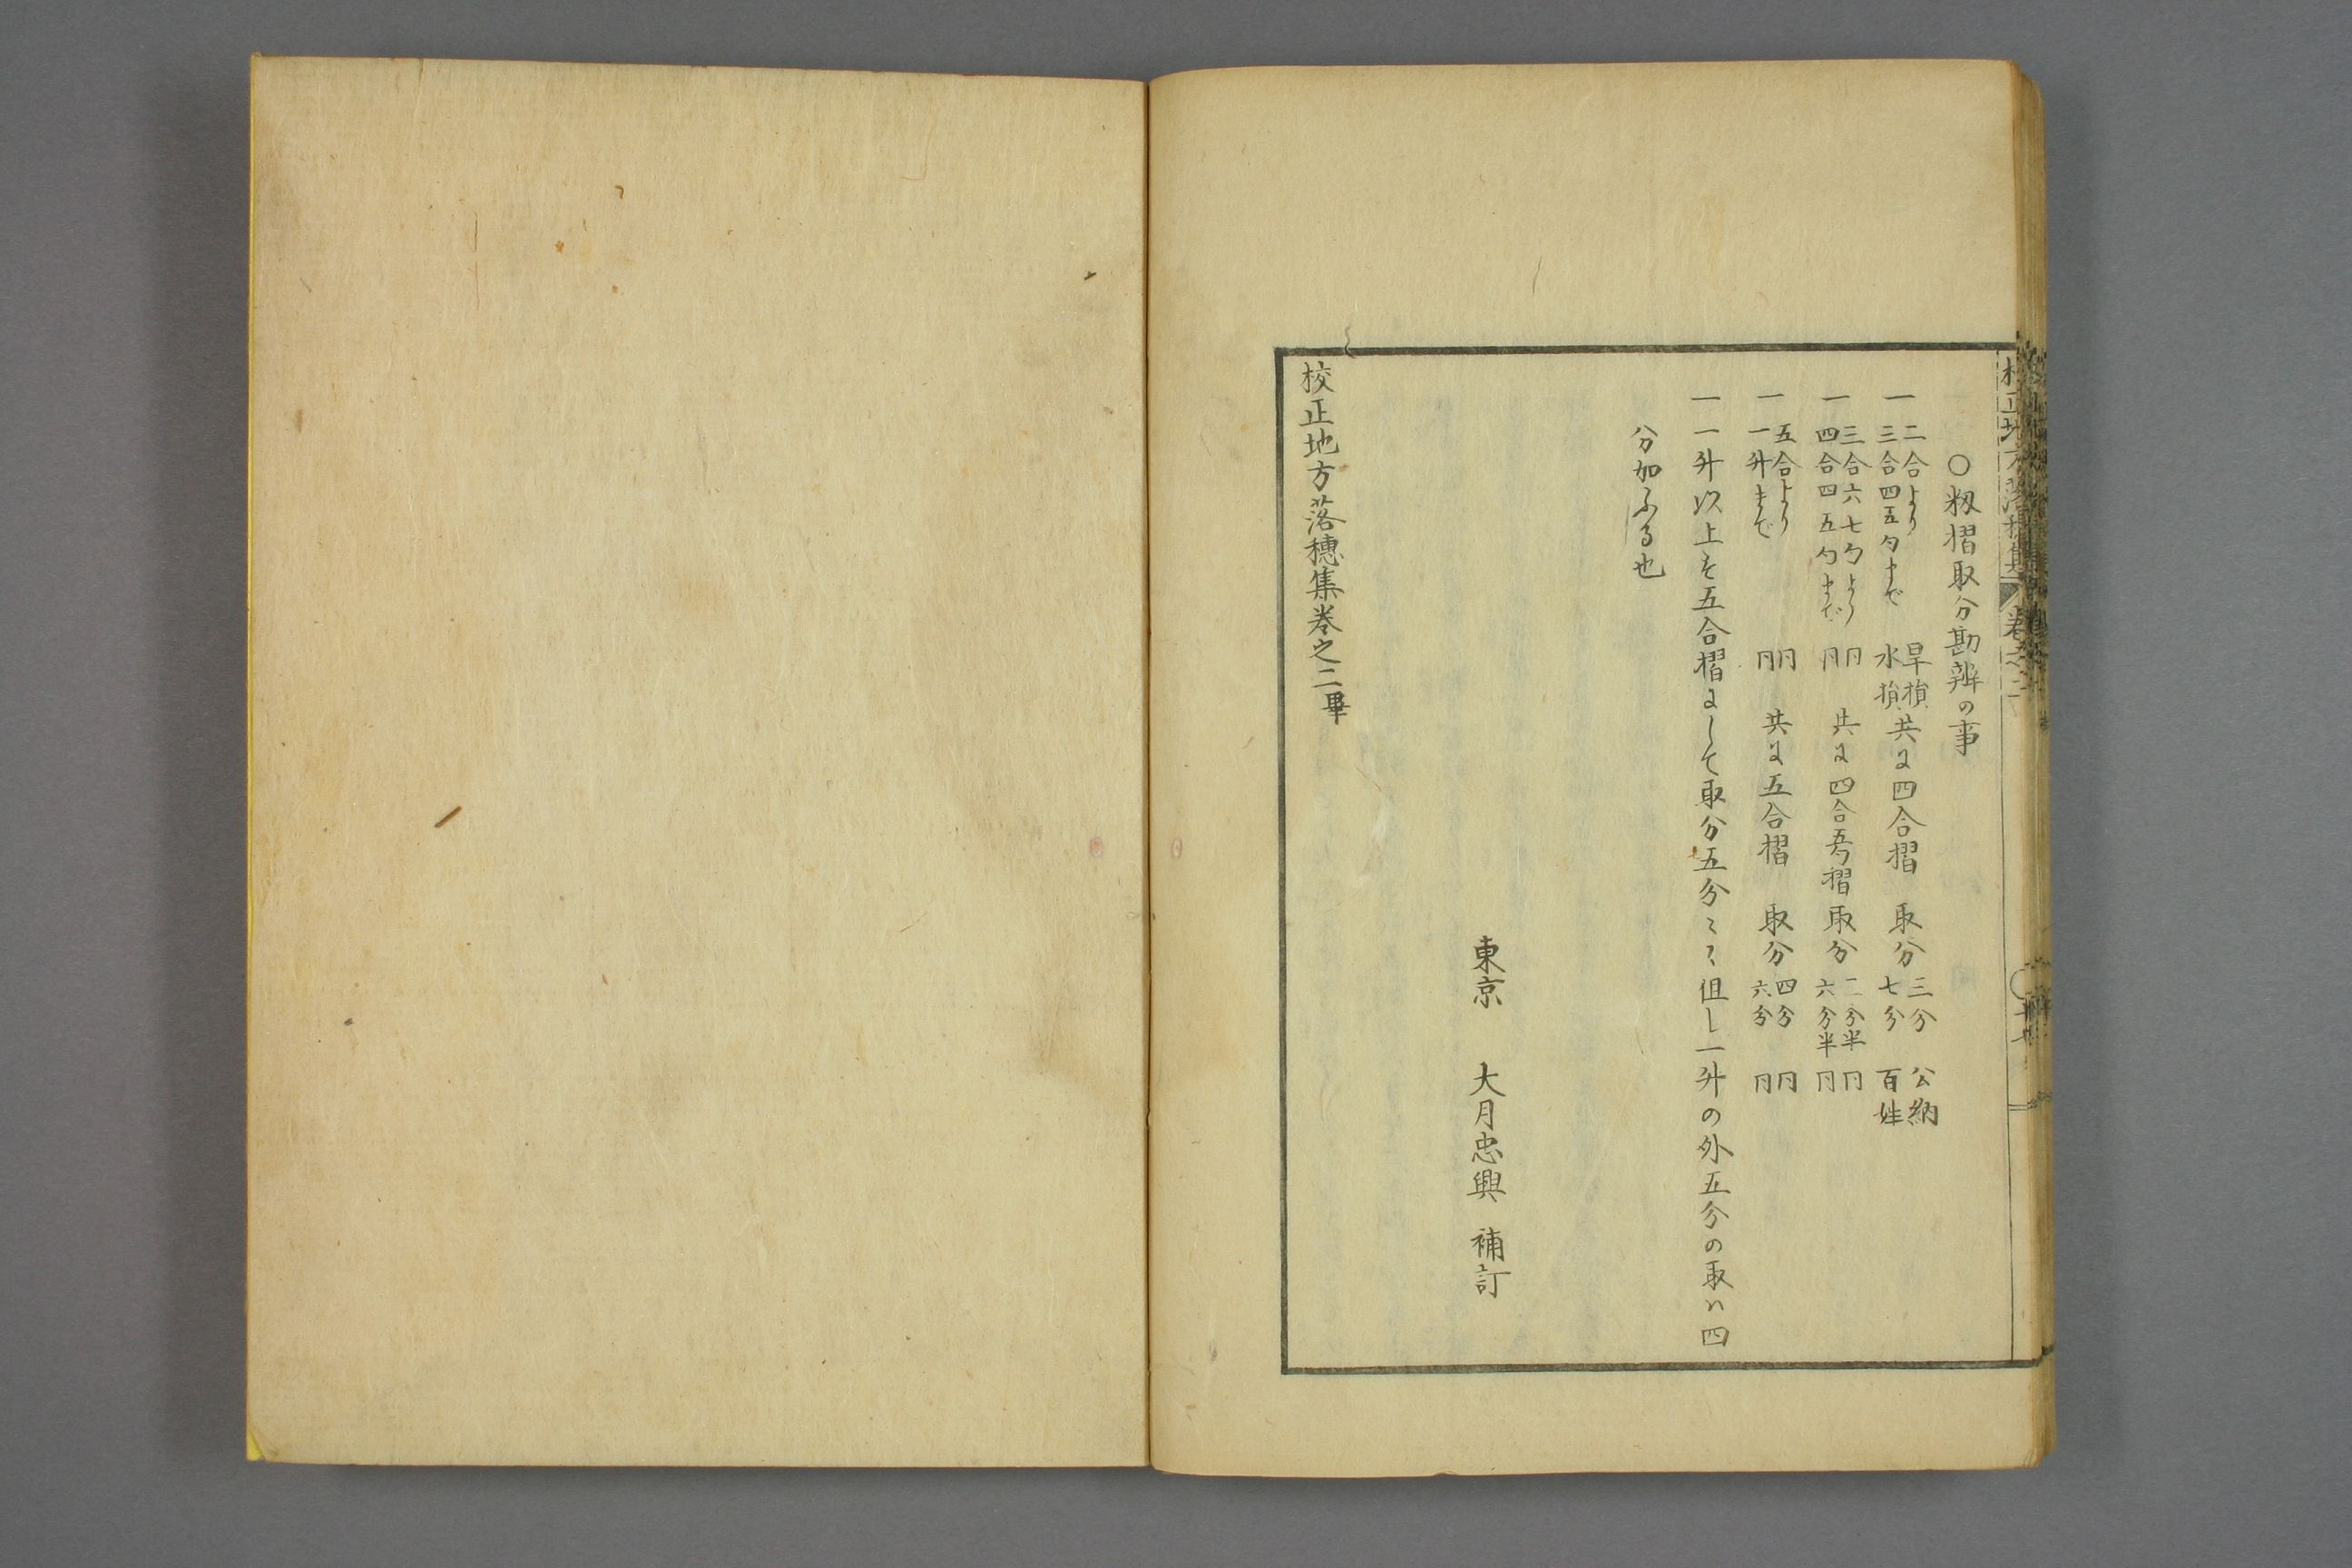 ○籾摺取分勘辨の事
一 二合より 三合四五勺まで 旱損 水損 共に四合摺 取分 三分 七分 公納 百姓
一 三合六七勺より 四合四五勺まで 同 同 共に四合五勺摺 取分 二分半 六分半 同 同
一 五合より 一升まで 同 同 共に五合摺 取分 四分 六分 同 同
一 一升以上も五合摺にして取分五分〻〻但し一升の外五分の取ハ四
分加ふる也
東京 大月忠興 補訂
校正地方落穗集巻之二畢